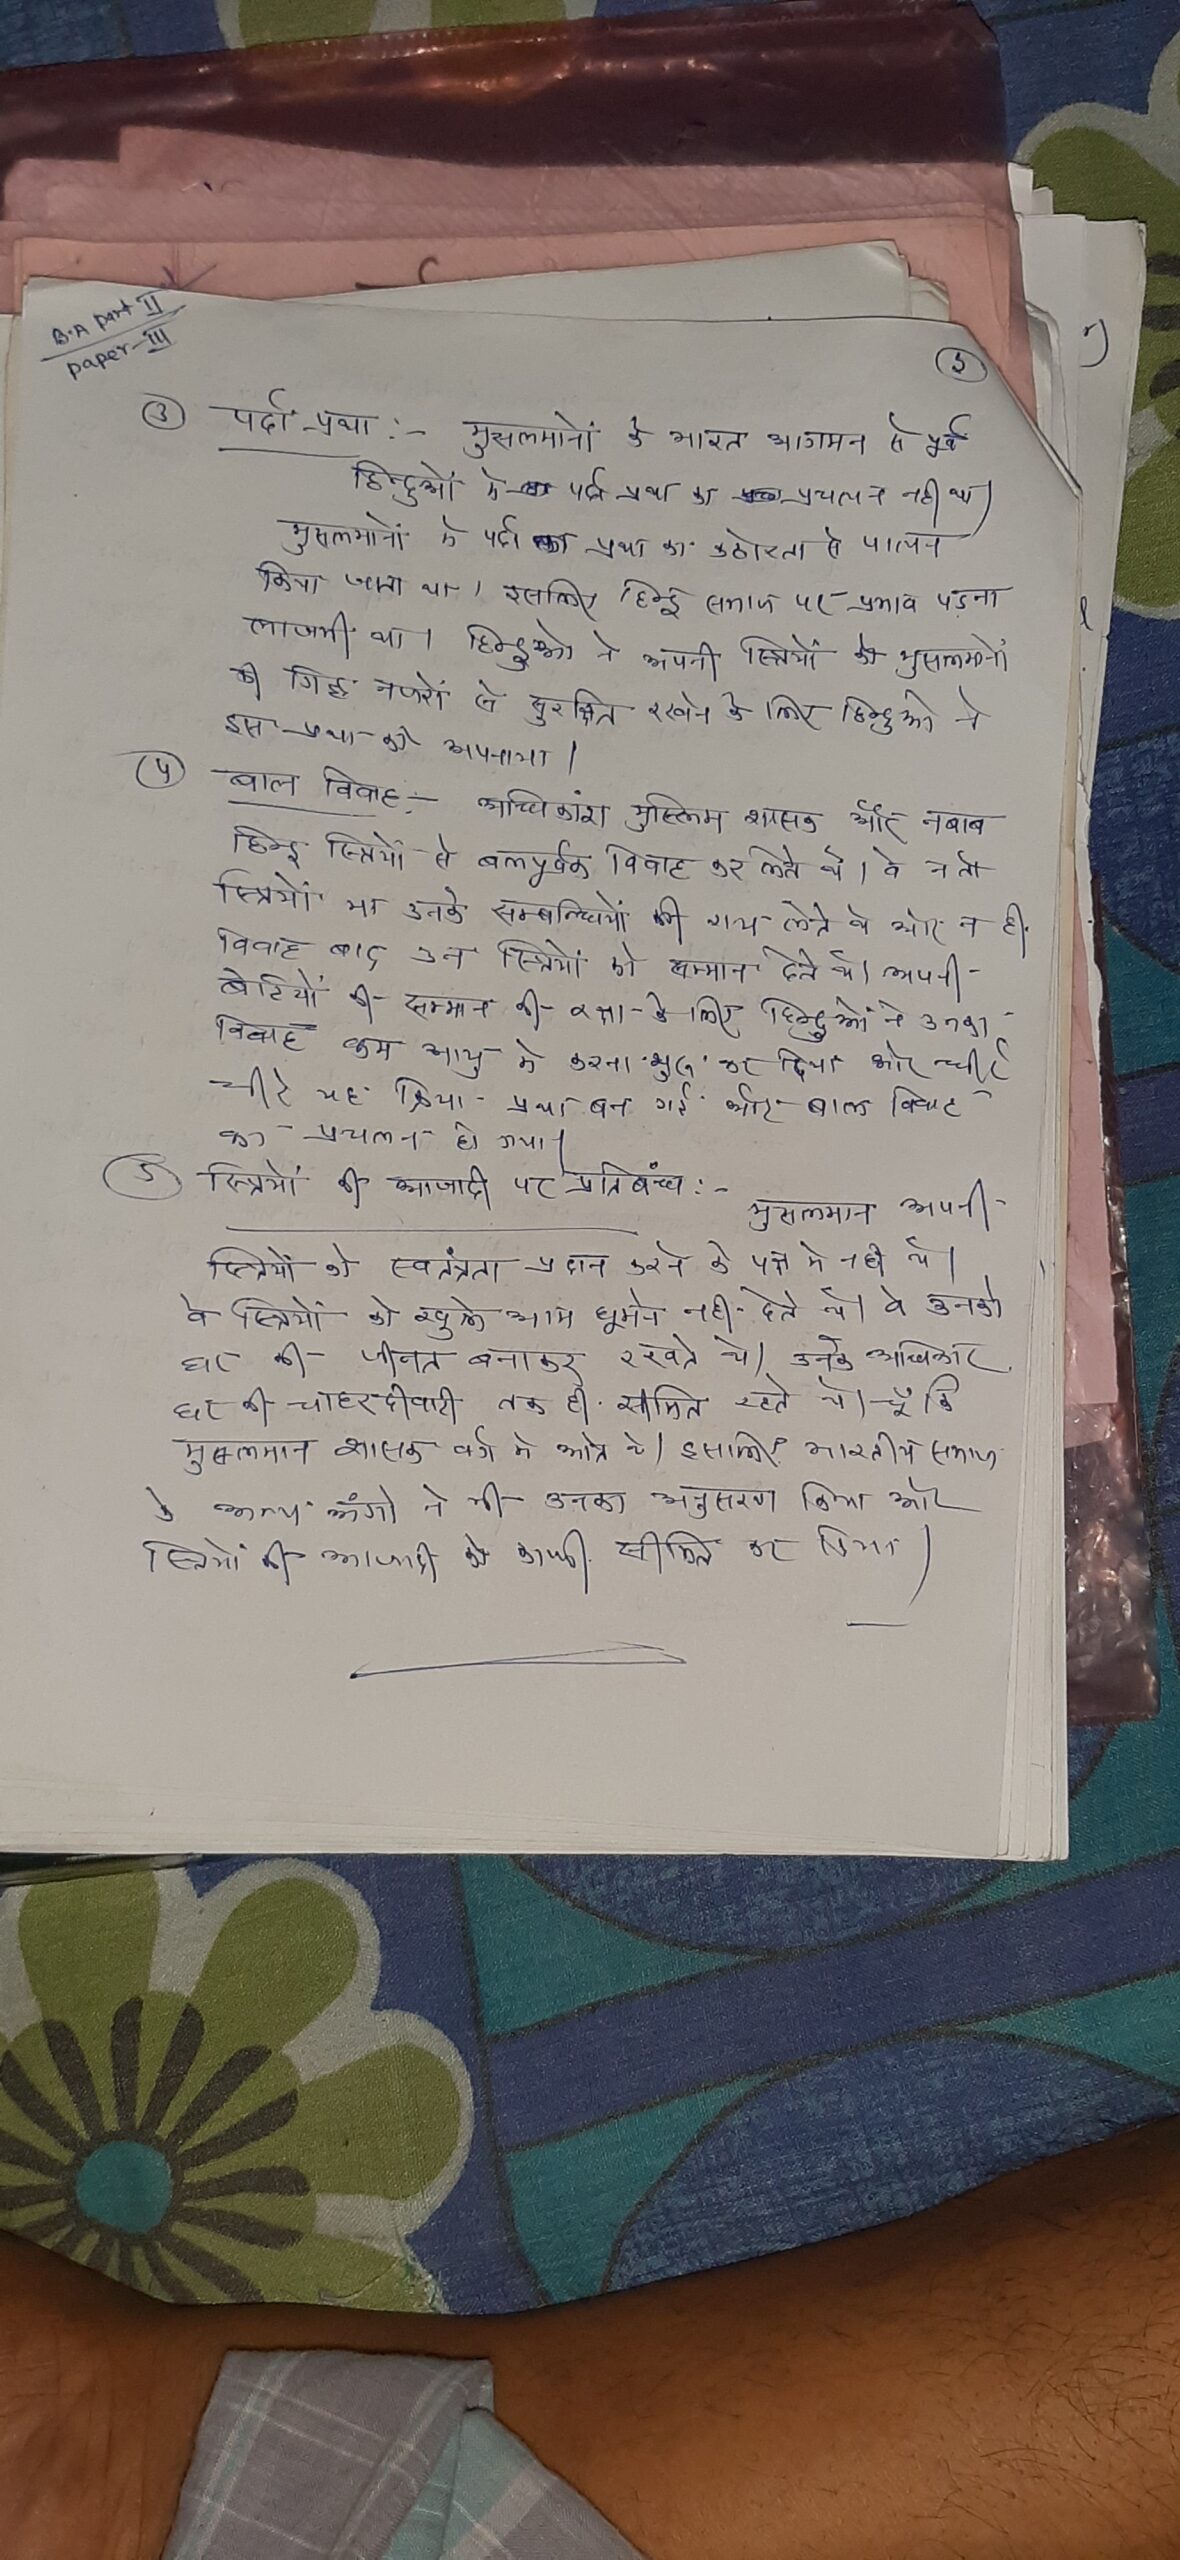 B.A part-II
paper-III
5
③ पर्दा प्रथा :- मुसलमानों के भारत आगमन से पूर्व
हिन्दुओं मे पर्दा प्रथा का प्रचलन नही था।
मुसलमानों मे पर्दा प्रथा का कठोरता से पालन
किया जाता था। इसलिए हिन्दु समाज पर प्रभाव पड़ना
लाजमी था। हिन्दुओ ने अपनी स्त्रियों को मुसलमानों
की गिद्ध नजरों से सुरक्षित रखने के लिए हिन्दुओ ने
इस प्रथा को अपनाया।
④ बाल विवाह :- अधिकांश मुस्लिम शासक और नबाब
हिन्दु स्त्रियों से बलपूर्वक विवाह कर लेते थे। वे न तो
स्त्रियों या उनके सम्बन्धियों की राय लेते थे और न ही
विवाह बाद उन स्त्रियों को सम्मान देते थे। अपनी
बेटियों की सम्मान की रक्षा के लिए हिन्दुओं ने उनका
विवाह कम आयु मे करना शुरु कर दिया और धीरे
धीरे यह क्रिया प्रथा बन गई और बाल विवाह
का प्रचलन हो गया।
⑤ स्त्रियों की आजादी पर प्रतिबंध :-
मुसलमान अपनी
स्त्रियों को स्वतंत्रता प्रदान करने के पक्ष मे नही थे।
वे स्त्रियों को खुले आम घूमने नही देते थे। वे उनको
घर की जीनत बनाकर रखते थे। उनके अधिकार
घर की चाहरदीवारी तक ही सीमित रहते थे। चूँकि
मुसलमान शासक वर्ग मे आते थे। इसलिए भारतीय समाज
के अन्य अंगो ने भी उनका अनुसरण किया और
स्त्रियों की आजादी को काफी सीमित कर दिया।